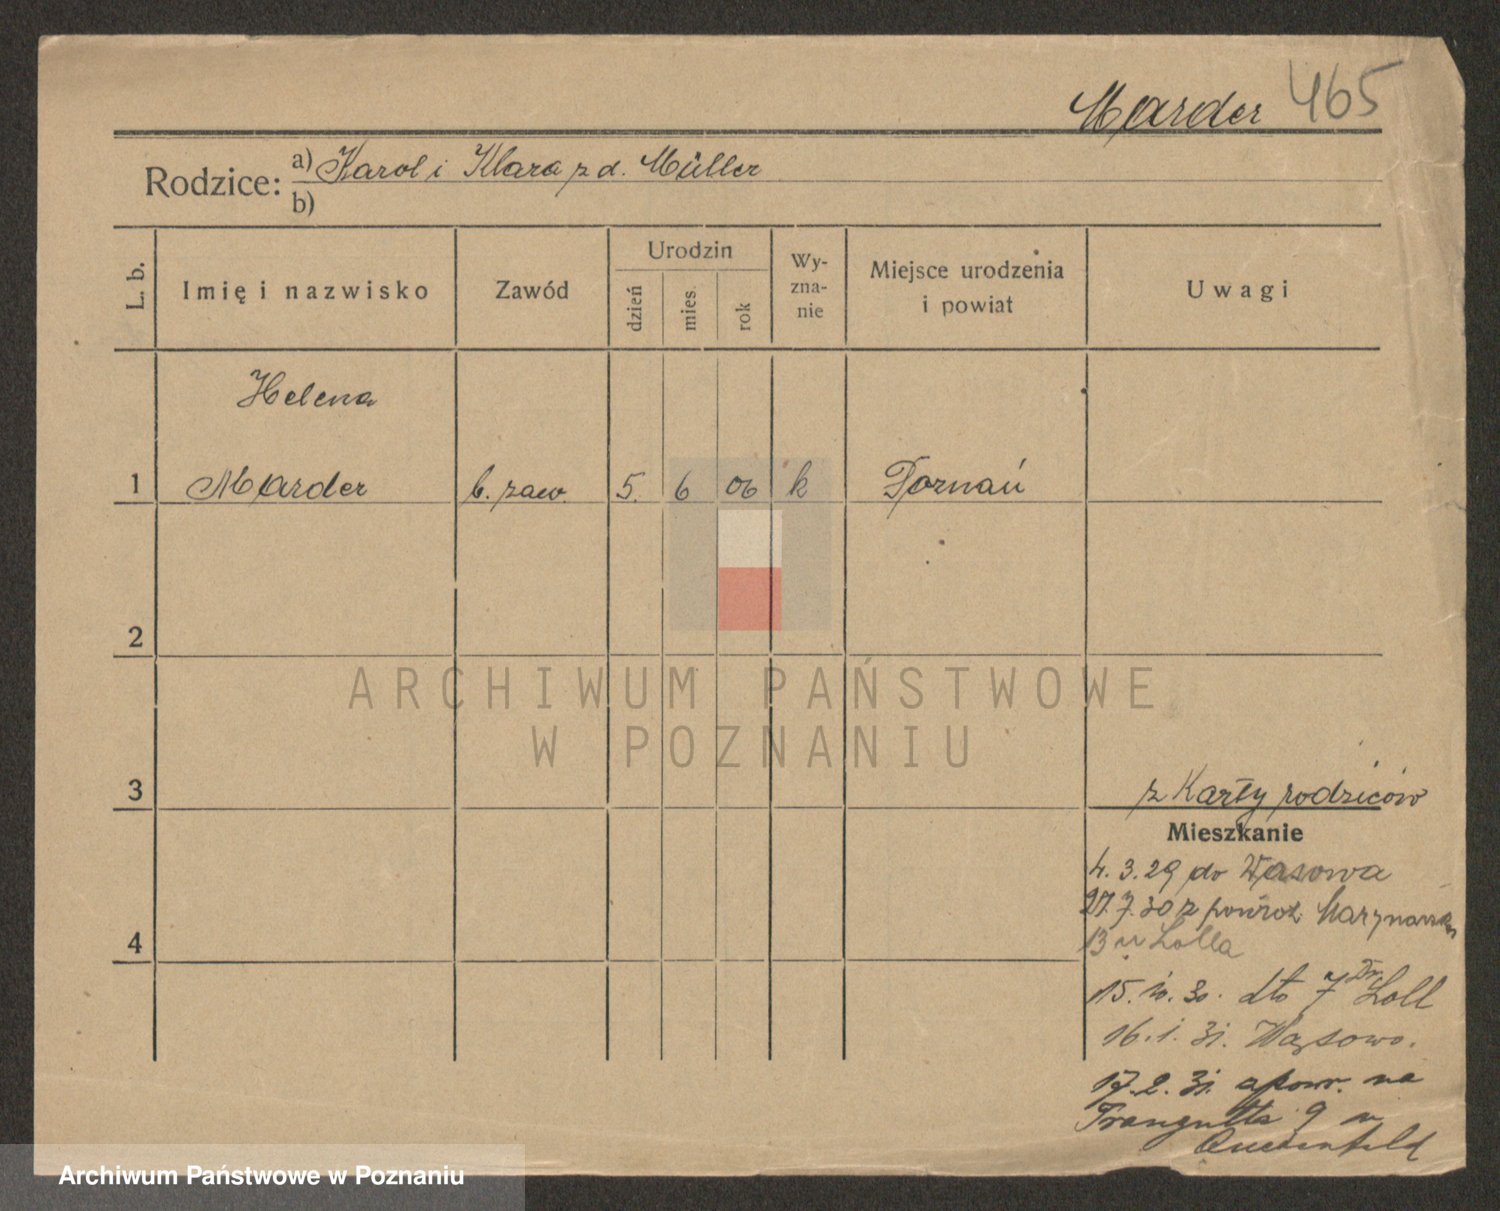 Marder 465
Rodzice: a) Karol i Klara z d. Müller
b)
L. b. Imię i nazwisko Zawód Urodzin dzień mies. rok Wyznanie Miejsce urodzenia i powiat Uwagi
Helena
1 Marder b. zaw. 5. 6 06 k Poznań
2
ARCHIWUM PAŃSTWOWE
W POZNANIU
3 z Karty rodziców
Mieszkanie
4. 3. 29 do Wąsowa
27. 7. 30 z powrot.
4
13 u Lolla
15. 10. 30. dto 7 Dr. Loll
16. 1. 31. Wąsowo.
17. 2. 31. na
Traugutta 9 u
Archiwum Państwowe w Poznaniu